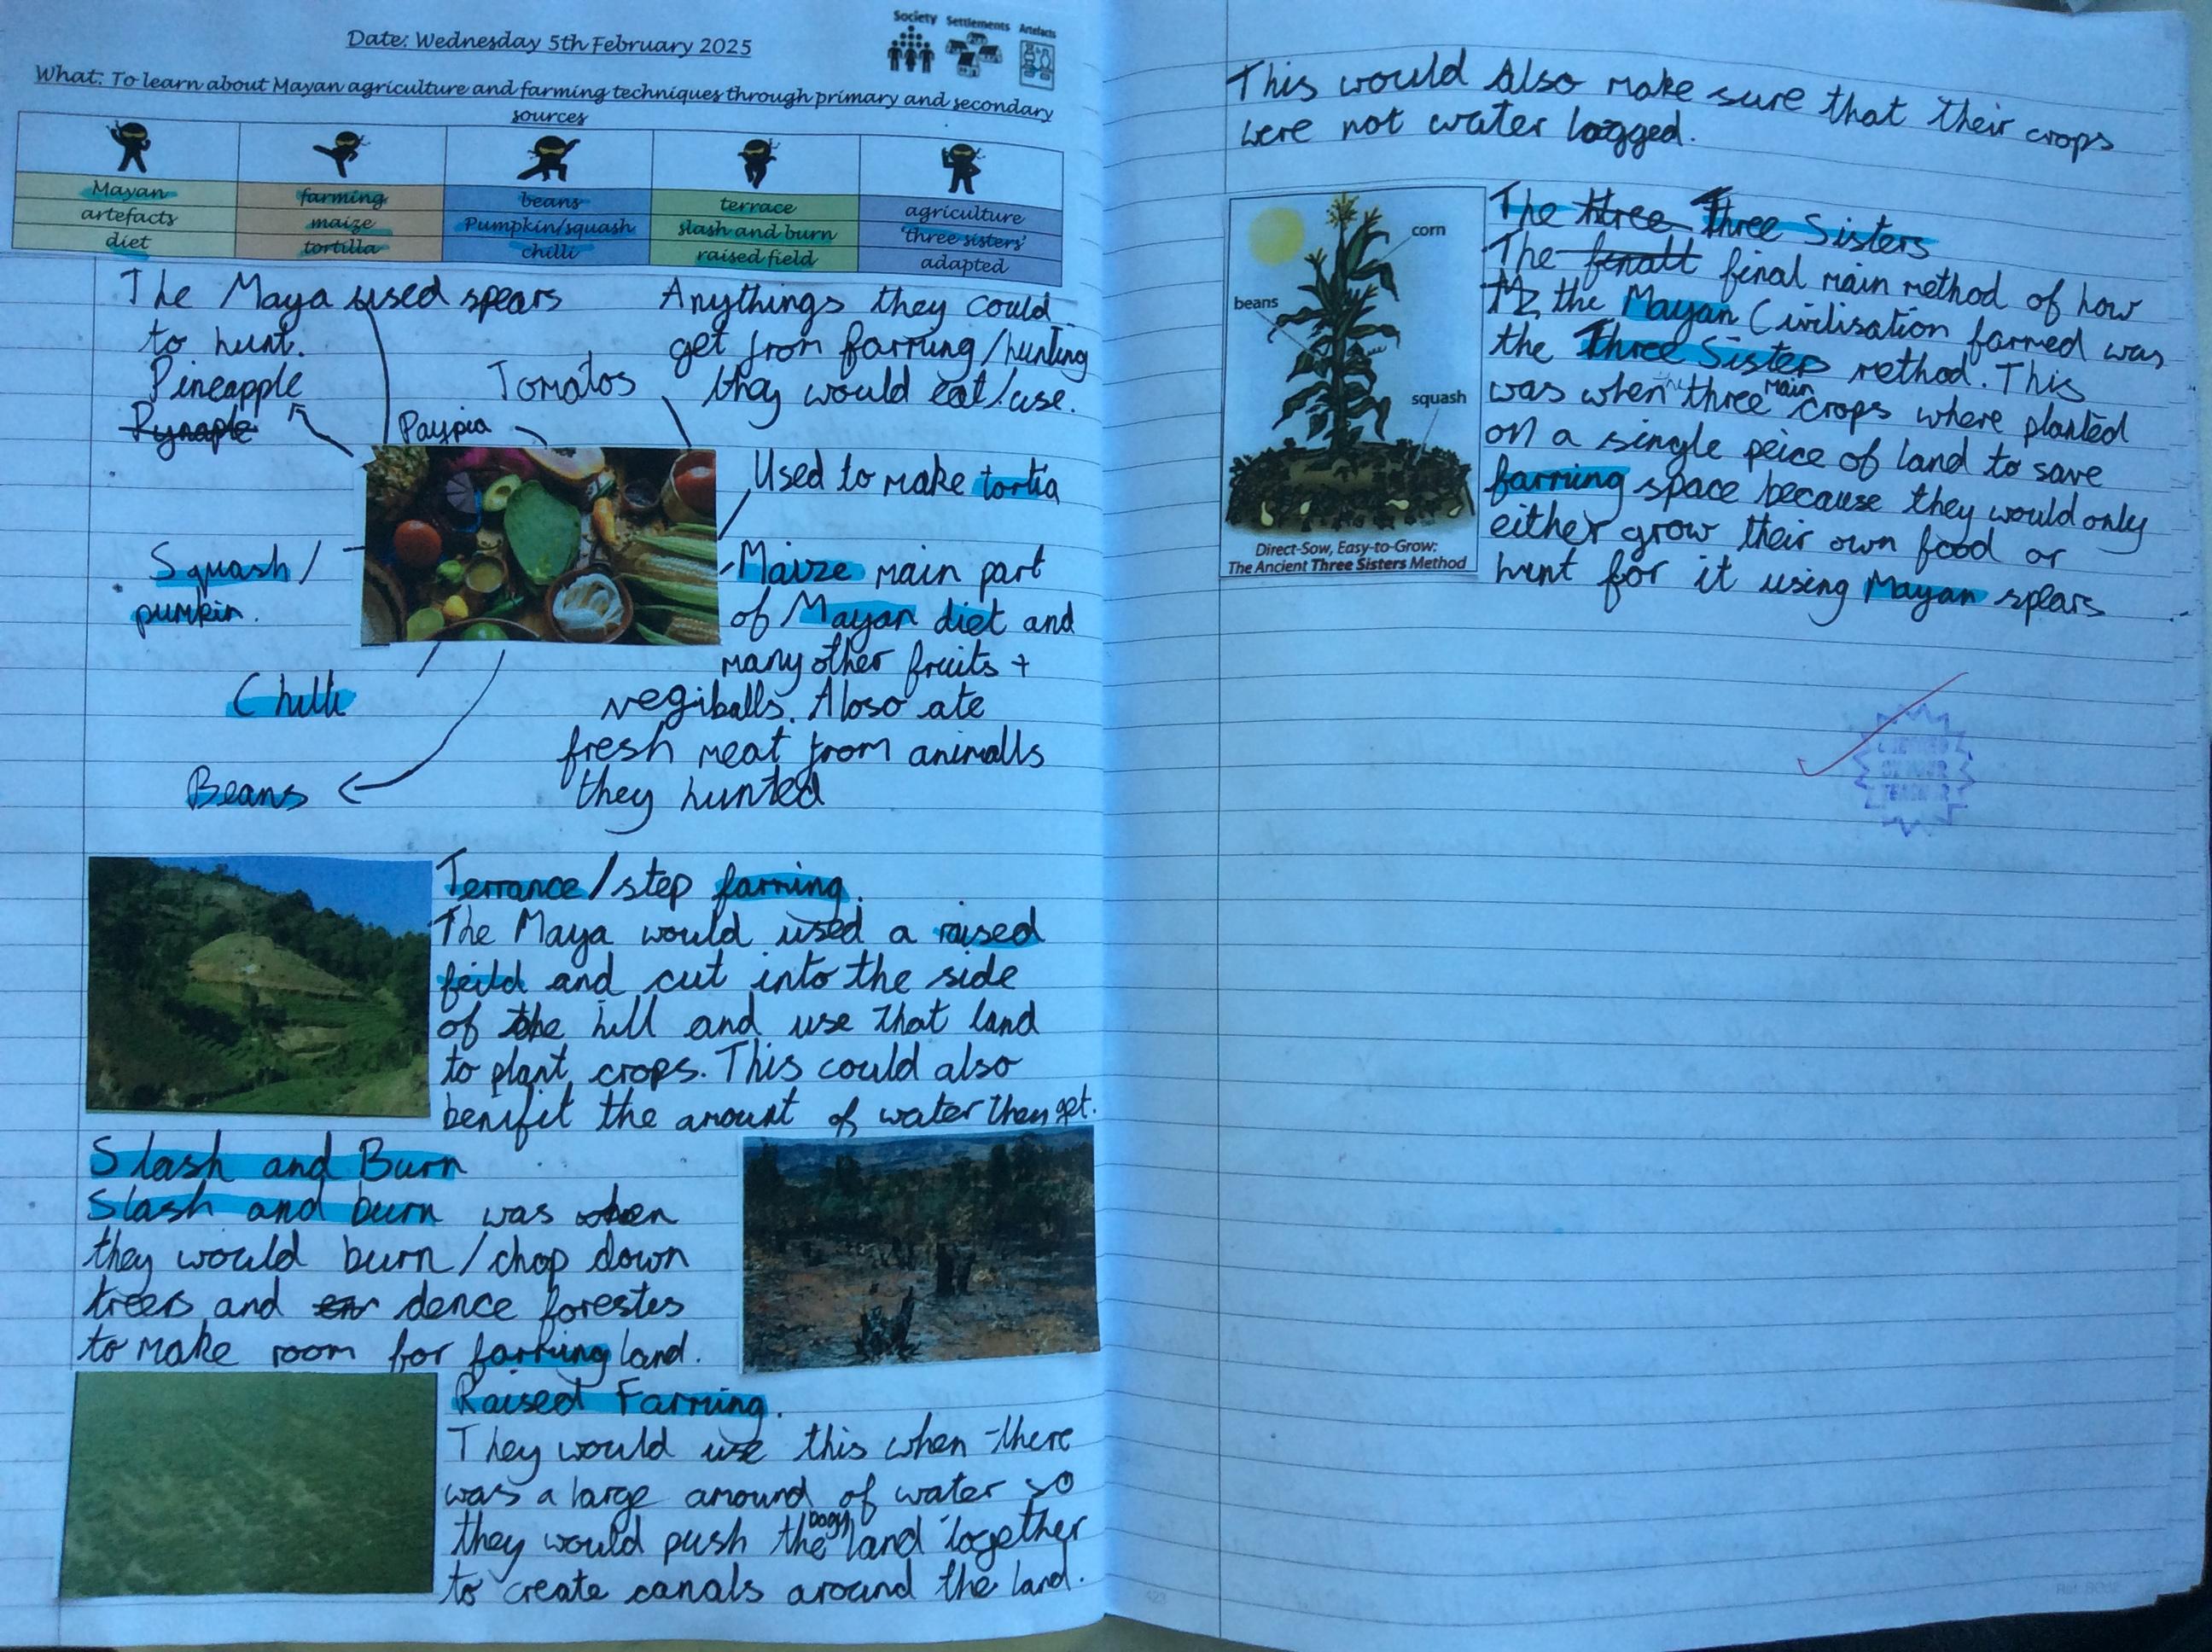 Society Settlements Artefacts
Date: Wednesday 5th February 2025
What: To learn about Mayan agriculture and farming techniques through primary and secondary
sources
Mayan farming beans terrace agriculture
artefacts maize Pumpkin/squash slash and burn 'three sisters'
diet tortilla chilli raised field adapted
The Maya used spears
to hunt.
Pineapple
Pynaple
Paypia
Tomatos
Anythings they could
get from farming/hunting
they would eat/use.
Used to make tortia
Maize main part
of Mayan diet and
many other fruits +
vegiballs. Aloso ate
fresh meat from animalls
they hunted
Squash/
pumkin.
Chilli
Beans
Terrance/step farming.
The Maya would used a raised
feild and cut into the side
of the hill and use that land
to plant crops. This could also
benifit the amount of water they get.
Slash and Burn
Slash and burn was when
they would burn/chop down
trees and dence forestes
to make room for farming land.
Raised Farming.
They would use this when there
was a large amound of water so
they would push the bogy land together
to create canals around the land.
This would Also make sure that their crops
were not water logged.
corn
beans
squash
Direct-Sow, Easy-to-Grow:
The Ancient Three Sisters Method
The three Three Sisters
The finall final main method of how
the Mayan Civilisation farmed was
the Three Sisters method. This
was when the three main crops where planted
on a single peice of land to save
farming space because they would only
either grow their own food or
hunt for it using Mayan spears